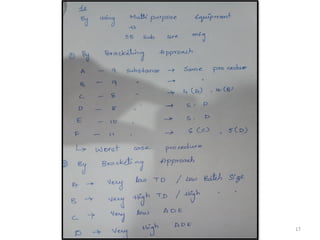 By using Multi purpose Equipment
55 sub are mfg
① By Bracketing Approach
A - 9 substance → Same procedure
B - 9 " → "
C - 8 " → 4(A), 4(B)
D - 8 " → S. P
E - 10 " → S. P
F - 11 " → 6(C), 5(D)
↳ Worst case procedure
② By Bracketing Approach
A → Very low TD / Low Batch Size
B → Very High TD / High " "
C → Very low ADE
D → Very High ADE
17